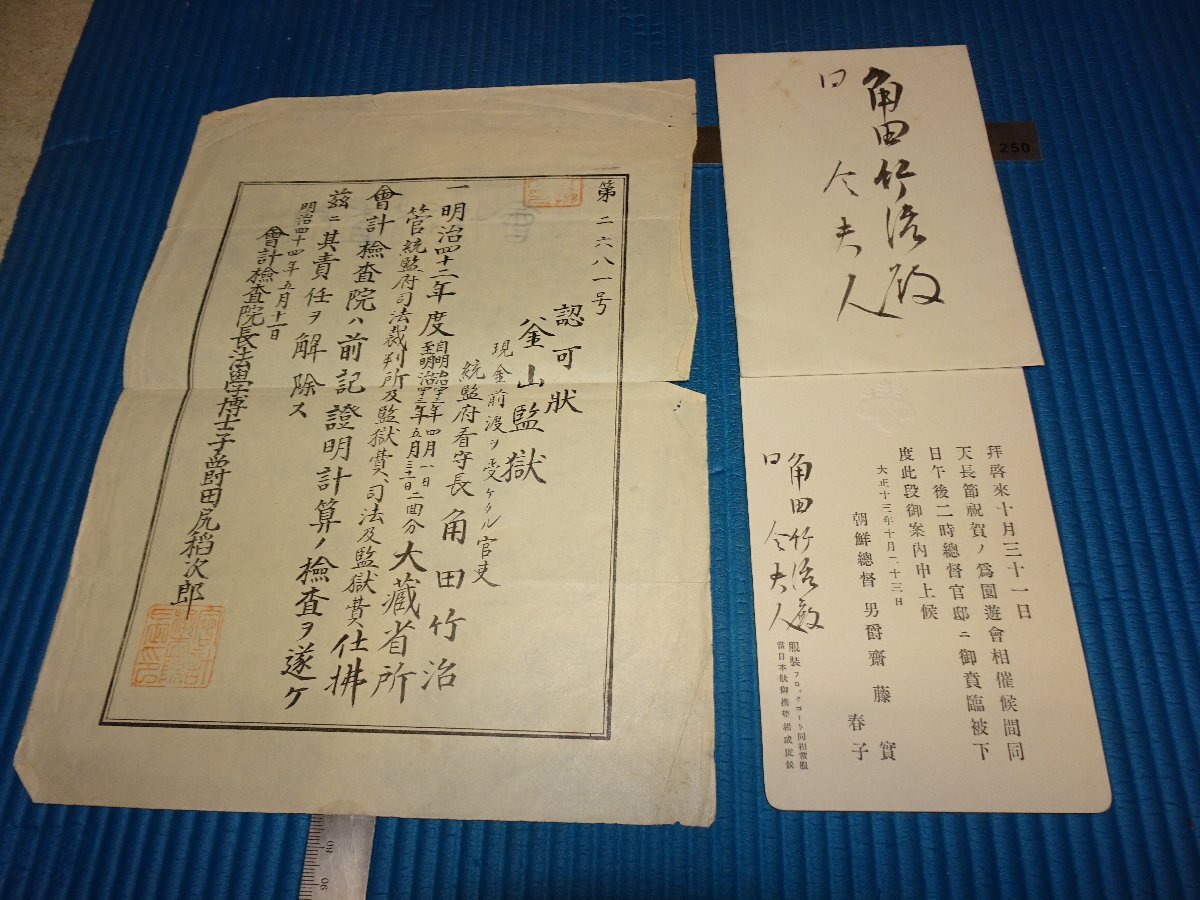 第二六八一号
認可狀
釜山監獄
現金前渡ヲ受ケタル官吏
統監府看守長 角田竹治
一明治四十二年度自明治四十二年四月一日至明治四十三年五月三十一日二回分大藏省所
管統監府司法裁判所及監獄費、司法及監獄費仕拂
會計檢查院ハ前記證明計算ノ檢查ヲ遂ケ
茲ニ其責任ヲ解除ス
明治四十四年五月十一日
會計檢查院長法學博士子爵田尻稻次郎
角田竹治殿
同 令夫人
拜啓來十月三十一日
天長節祝賀ノ爲園遊會相催候間同
日午後二時總督官邸ニ御賁臨被下
度此段御案内申上候
大正十三年十月二十三日
朝鮮總督 男爵齋藤 實
春子
角田竹治殿
同 令夫人
服裝フロックコート同相當服
當日本狀御携帶相成度候
250